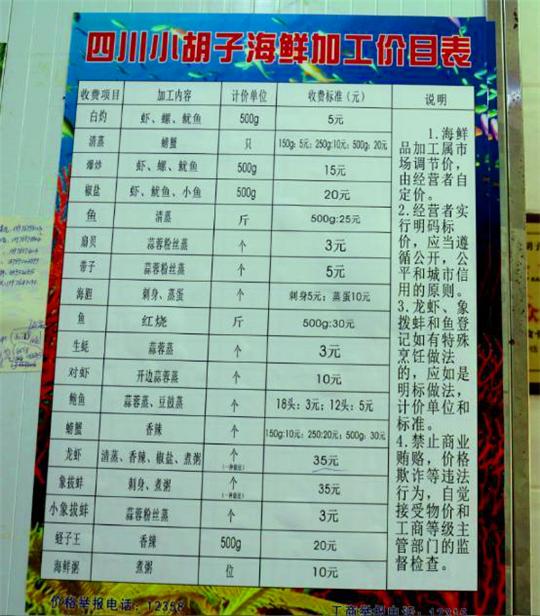 四川小胡子海鲜加工价目表
收费项目 加工内容 计价单位 收费标准（元） 说明
白灼 虾、螺、鱿鱼 500g 5元
清蒸 螃蟹 只 150g:5元；250g:10元；500g:20元
爆炒 虾、螺、鱿鱼 500g 15元
椒盐 虾、鱿鱼、小鱼 500g 20元
鱼 清蒸 斤 500g:25元
扇贝 蒜蓉粉丝蒸 个 3元
带子 蒜蓉粉丝蒸 个 5元
海胆 刺身、蒸蛋 个 刺身5元；蒸蛋10元
鱼 红烧 斤 500g:30元
生蚝 蒜蓉蒸 个 3元
对虾 开边蒜蓉蒸 个 10元
鲍鱼 蒜蓉蒸、豆豉蒸 个 18头：3元；12头：5元
螃蟹 香辣 个 150g:10元；250:20元；500g：30元
龙虾 清蒸、香辣、椒盐、煮粥 个 35元
（一种做法）
象拔蚌 刺身、煮粥 个 35元
（一种做法）
小象拔蚌 蒜蓉粉丝蒸 个 3元
蛏子王 香辣 500g 20元
海鲜粥 煮粥 位 10元
1.海鲜
品加工属市
场调节价，
由经营者自
定价。
2.经营者实
行明码标
价，应当遵
循公开，公
平和城市信
用的原则。
3.龙虾、象
拨蚌和鱼登
记如有特殊
烹饪做法
的，应如是
明标做法，
计价单位和
标准。
4.禁止商业
贿赂，价格
欺诈等违法
行为，自觉
接受物价和
工商等级主
管部门的监
督检查。
价格举报电话：12358
工商举报电话：12315